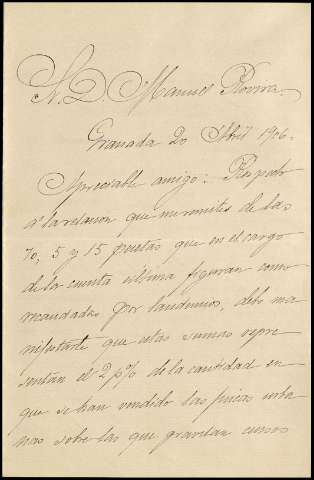 Sr. D. Manuel
Granada 20 Abril 1906.
Apreciable amigo: Respecto
a la relacion que me remites de las
70, 5 y 15 pesetas que en el cargo
de la cuenta ultima figuran como
recaudadas por laudemios, debo ma
nifestarte que estas sumas repre
sentan el 2 p% de la cantidad en
que se han vendido las fincas urba
nas sobre las que gravitan censos